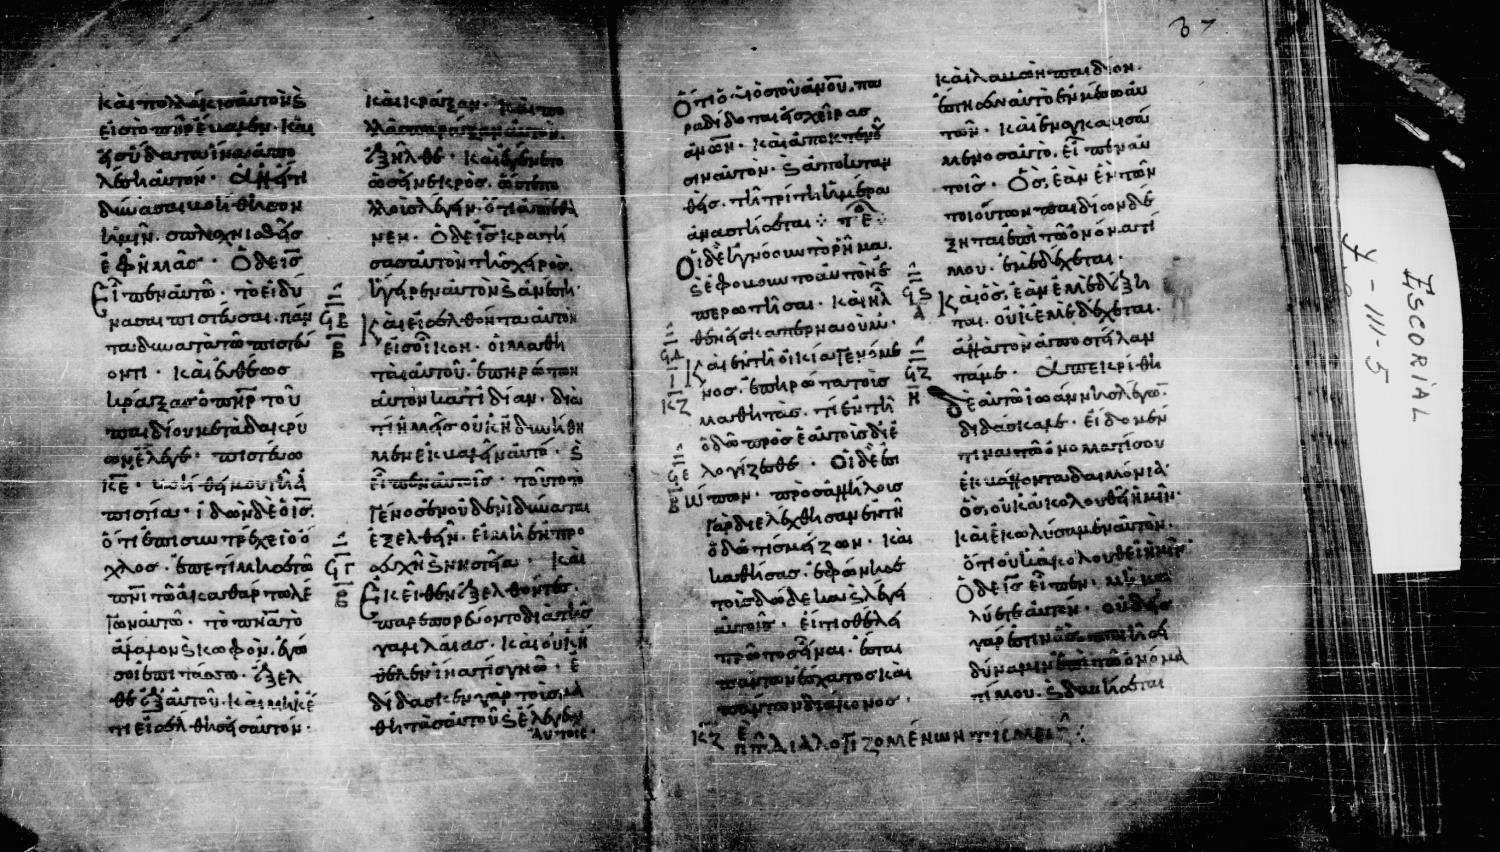 καὶ πολλάκις αὐτὸν ϗ
εἰς τὸ πῦρ ἔβαλεν. καὶ
εἰς ὕδατα ἵνα ἀπο
λέσῃ αὐτόν· ἀλλ' εἴ τι
δύνασαι βοήθησον
ἡμῖν. σπλαγχνισθεὶς
ἐφ' ἡμᾶς· Ὁ δὲ ις
εἶπεν αὐτῷ· τὸ εἰ δύ
νασαι πιστεῦσαι. πάν
τα δυνατὰ τῷ πιστεύ
οντι· καὶ εὐθέως
κράξας ὁ πηρ τοῦ
παιδίου μετὰ δακρύ
ων ἔλεγε· πιστεύω
κε· βοήθει μου τῇ ἀ
πιστίᾳ· ἰδὼν δὲ ὁ ις
ὅτι ἐπισυντρέχει ὁ ὄ
χλος. ἐπετίμησε τῷ
πνι τῷ ἀκαθάρτῳ λέ
γων αὐτῷ· τὸ πνα τὸ
ἄλαλον ϗ κωφόν. ἐγώ
σοι ἐπιτάσσω. ἔξελ
θε ἐξ αὐτοῦ. καὶ μηκέ
τι εἰσέλθῃς εἰς αὐτόν·
καὶ κράξαν. καὶ πο
λλὰ σπαράξαν αὐτὸν.
ἐξῆλθε· καὶ ἐγένετο
ὡσεὶ νεκρός. ὥστε πο
λλοὺς λέγειν. ὅτι ἀπέθα
νεν· Ὁ δὲ ις κρατή
σας αὐτὸν τῆς χειρὸς.
ἤγειρεν αὐτὸν ϗ ἀνέστη·
Καὶ εἰσελθόντα αὐτὸν
εἰς οἶκον. οἱ μαθη
ταὶ αὐτοῦ. ἐπηρώτων
αὐτὸν κατ' ἰδίαν. δια
τί ἡμεῖς οὐκ ἠδυνήθη
μεν ἐκβαλεῖν αὐτό· ϗ
εἶπεν αὐτοῖς· τοῦτο τὸ
γένος ἐν οὐδενὶ δύναται
ἐξελθεῖν. εἰ μὴ ἐν προ
σευχῇ ϗ νηστείᾳ· Καὶ
Ἐκεῖθεν ἐξελθόντες.
παρεπορεύοντο διὰ τῆς
γαλιλαίας. καὶ οὐκ ἤ
θελεν ἵνα τίς γνῷ· ἐ
δίδασκεν γὰρ τοὺς μα
θητὰς αὐτοῦ ϗ ἔλεγεν
αὐτοῖς·
Ὅτι ὁ υἱὸς τοῦ ανου. πα
ραδίδοται εἰς χεῖρας
ανων. καὶ ἀποκτενοῦ
σιν αὐτὸν. ϗ ἀποκταν
θεὶς. τῇ τρίτῃ ἡμέρᾳ
ἀναστήσεται
Οἱ δὲ ἠγνόουν τὸ ῥῆμα.
ϗ ἐφοβοῦντο αὐτὸν ἐ
περωτῆσαι. καὶ ἦλ
θεν εἰς καπερναούμ.
Καὶ ἐν τῇ οἰκίᾳ γενόμε
νος. ἐπηρώτα τοὺς
μαθητάς. τί ἐν τῇ
ὁδῷ πρὸς ἑαυτοὺς διε
λογίζεσθε· Οἱ δὲ ἐσι
ώπων. πρὸς ἀλλήλους
γὰρ διελέχθησαν ἐν τῇ
ὁδῷ τίς μείζων. καὶ
καθίσας. ἐφώνησε
τοὺς δώδεκα ϗ λέγει
αὐτοῖς· εἴ τις θέλει
πρῶτος εἶναι. ἔσται
πάντων ἔσχατος καὶ
πάντων διάκονος·
ΚΖ διαλογιζομένων τίς μείζ
37
καὶ λαβὼν παιδίον.
ἔστησεν αὐτὸ ἐν μέσῳ αὐ
τῶν. καὶ ἐναγκαλισά
μενος αὐτὸ. εἶπεν αὐ
τοῖς· Ὃς ἐὰν ἓν τῶν
τοιούτων παιδίων δέ
ξηται ἐπὶ τῷ ὀνόματί
μου. ἐμὲ δέχεται.
Καὶ ὃς ἐὰν ἐμὲ δέξη
ται. οὐκ ἐμὲ δέχεται.
ἀλλὰ τὸν ἀποστείλαν
τά με· Ἀπεκρίθη
δὲ αὐτῷ ἰωάννης λέγων.
διδάσκαλε. εἴδομέν
τινα τῷ ὀνόματί σου
ἐκβάλλοντα δαιμόνια·
ὃς οὐκ ἀκολουθεῖ ἡμῖν.
καὶ ἐκωλύσαμεν αὐτὸν.
ὅτι οὐκ ἀκολουθεῖ ἡμῖν·
Ὁ δὲ ις εἶπεν. μὴ κω
λύετε αὐτόν. οὐδεὶς
γάρ ἐστιν ὃς ποιήσει
δύναμιν ἐπὶ τῷ ὀνόμα
τί μου. ϗ δυνήσεται
ESCORIAL
Y-III-5